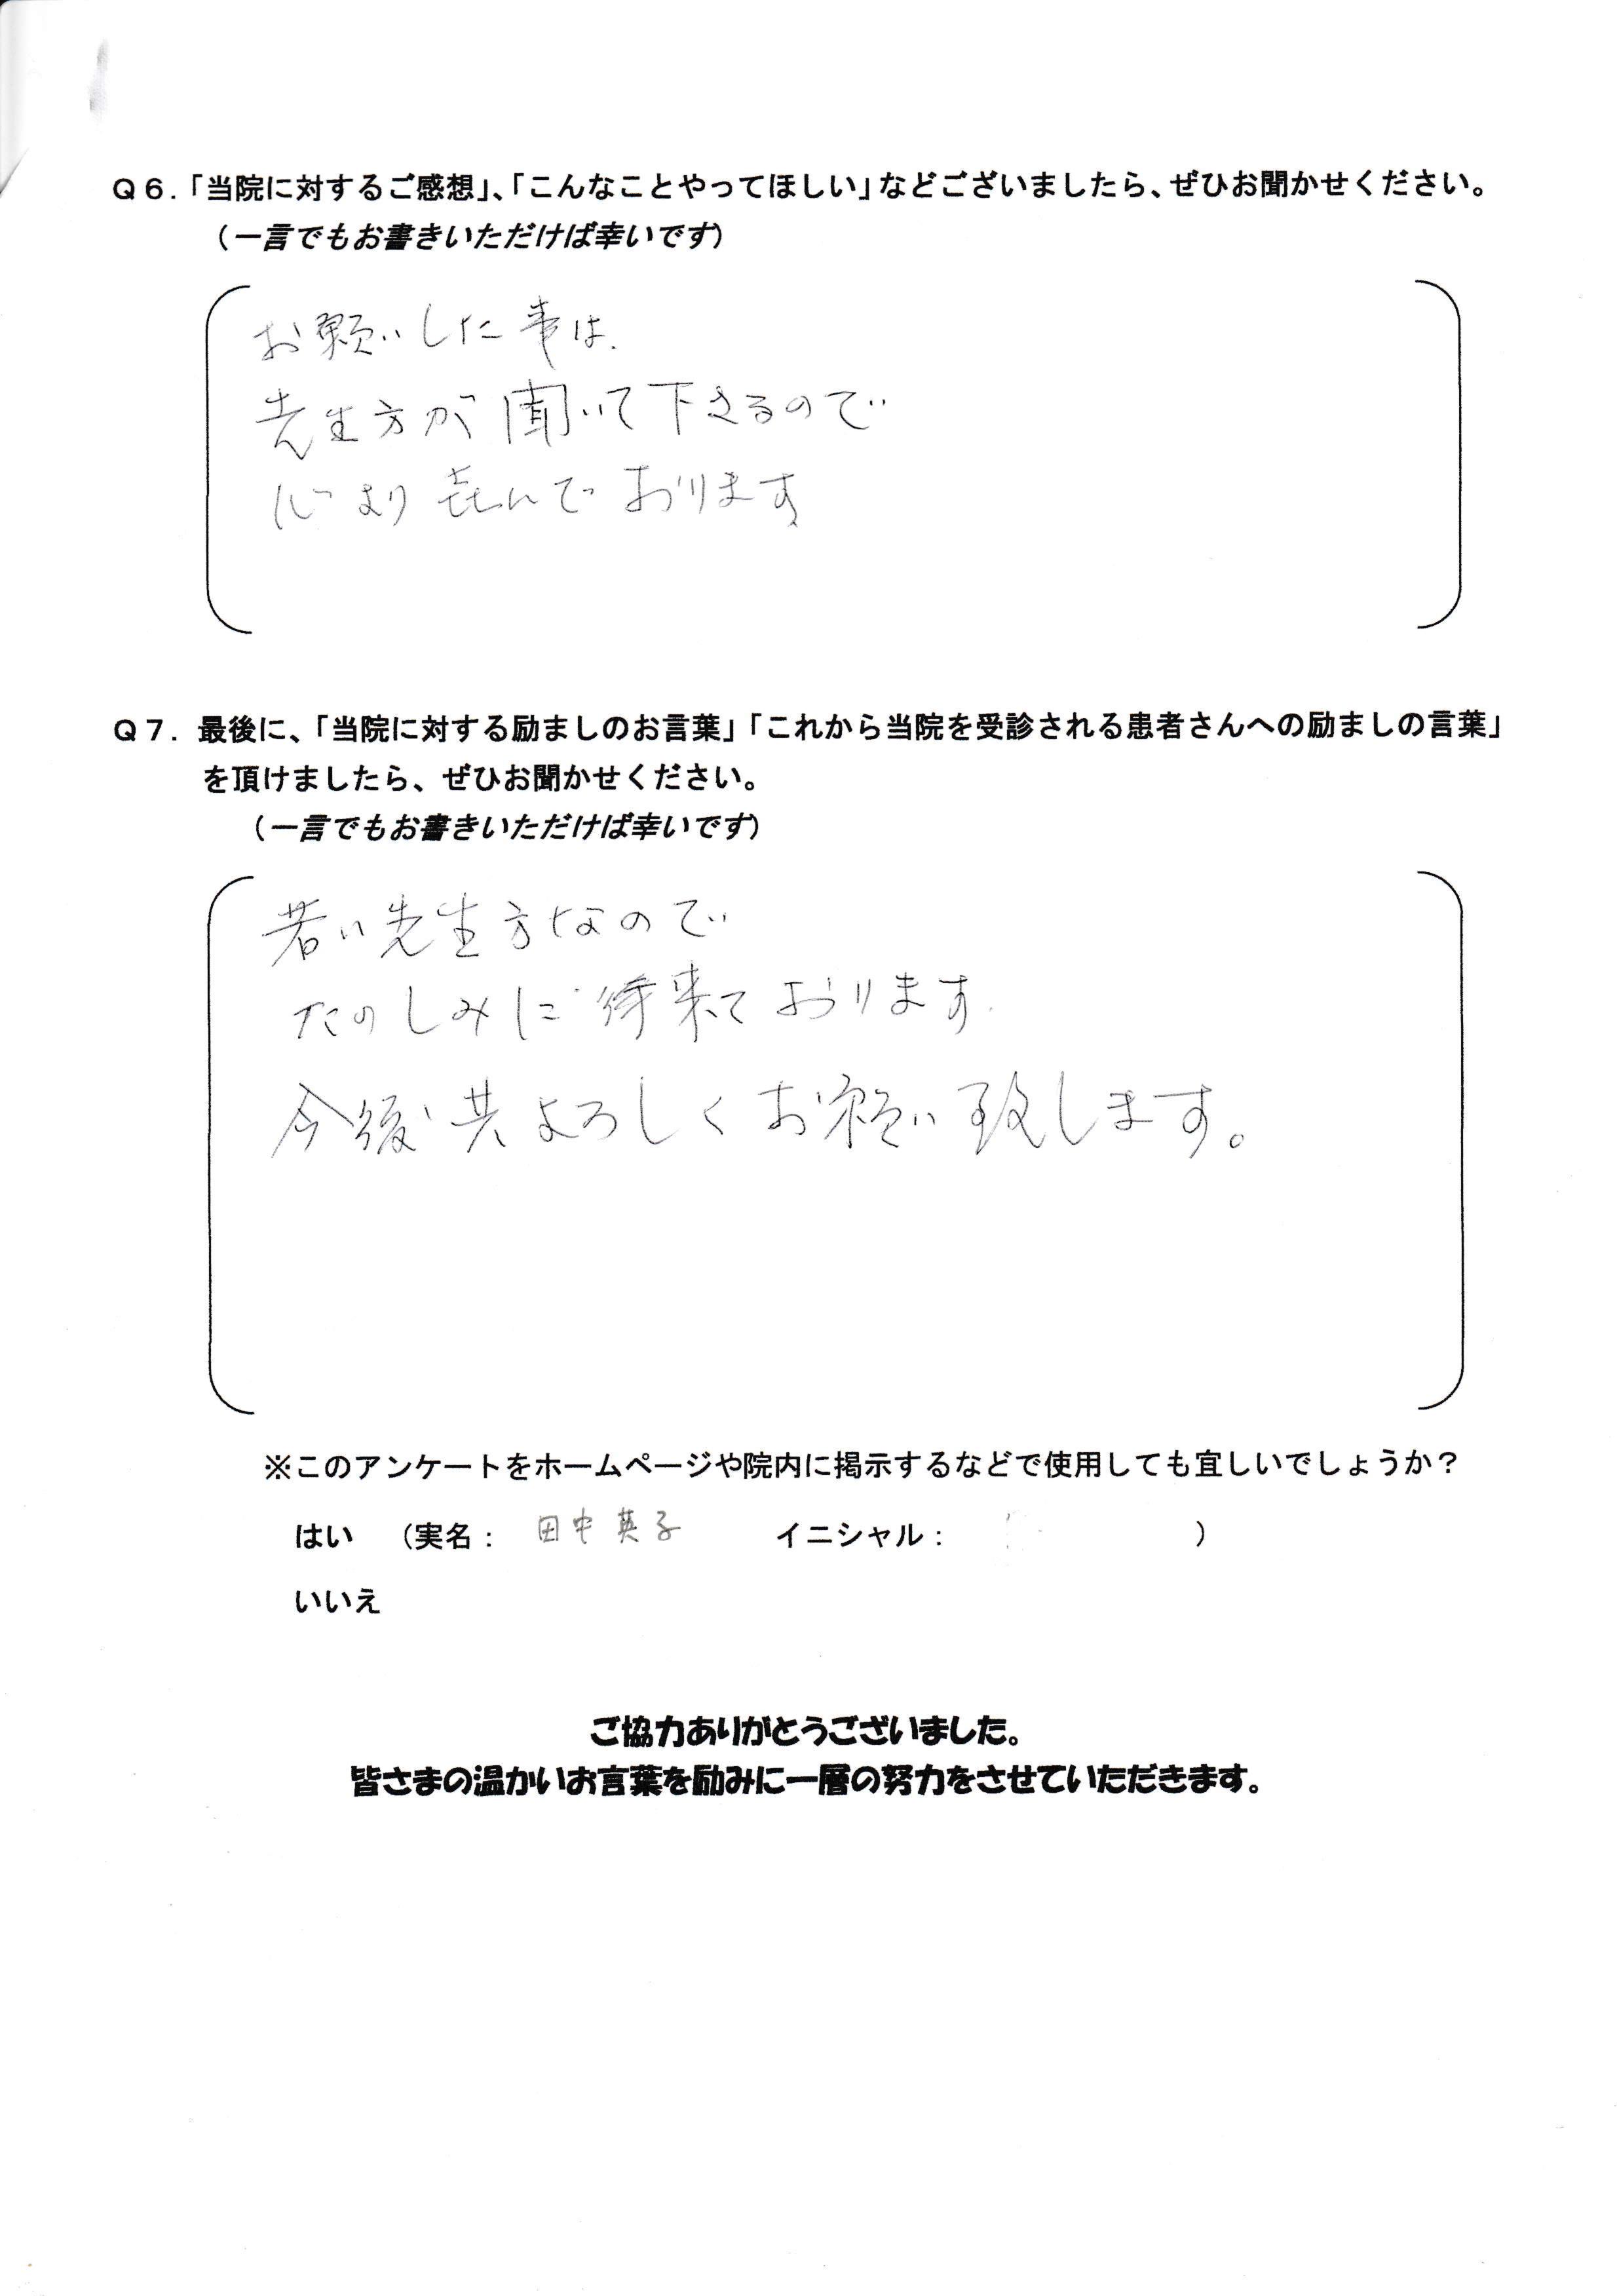 Q6.「当院に対するご感想」、「こんなことやってほしい」などございましたら、ぜひお聞かせください。
（一言でもお書きいただけば幸いです）
お願いした事は、
先生方が聞いて下さるので
心より喜んでおります
Q7. 最後に、「当院に対する励ましのお言葉」「これから当院を受診される患者さんへの励ましの言葉」
を頂けましたら、ぜひお聞かせください。
（一言でもお書きいただけば幸いです）
若い先生方なので
たのしみに 来ております
今後共よろしくお願い致します。
※このアンケートをホームページや院内に掲示するなどで使用しても宜しいでしょうか？
はい （実名： 田中英子 イニシャル： ）
いいえ
ご協力ありがとうございました。
皆さまの温かいお言葉を励みに一層の努力をさせていただきます。